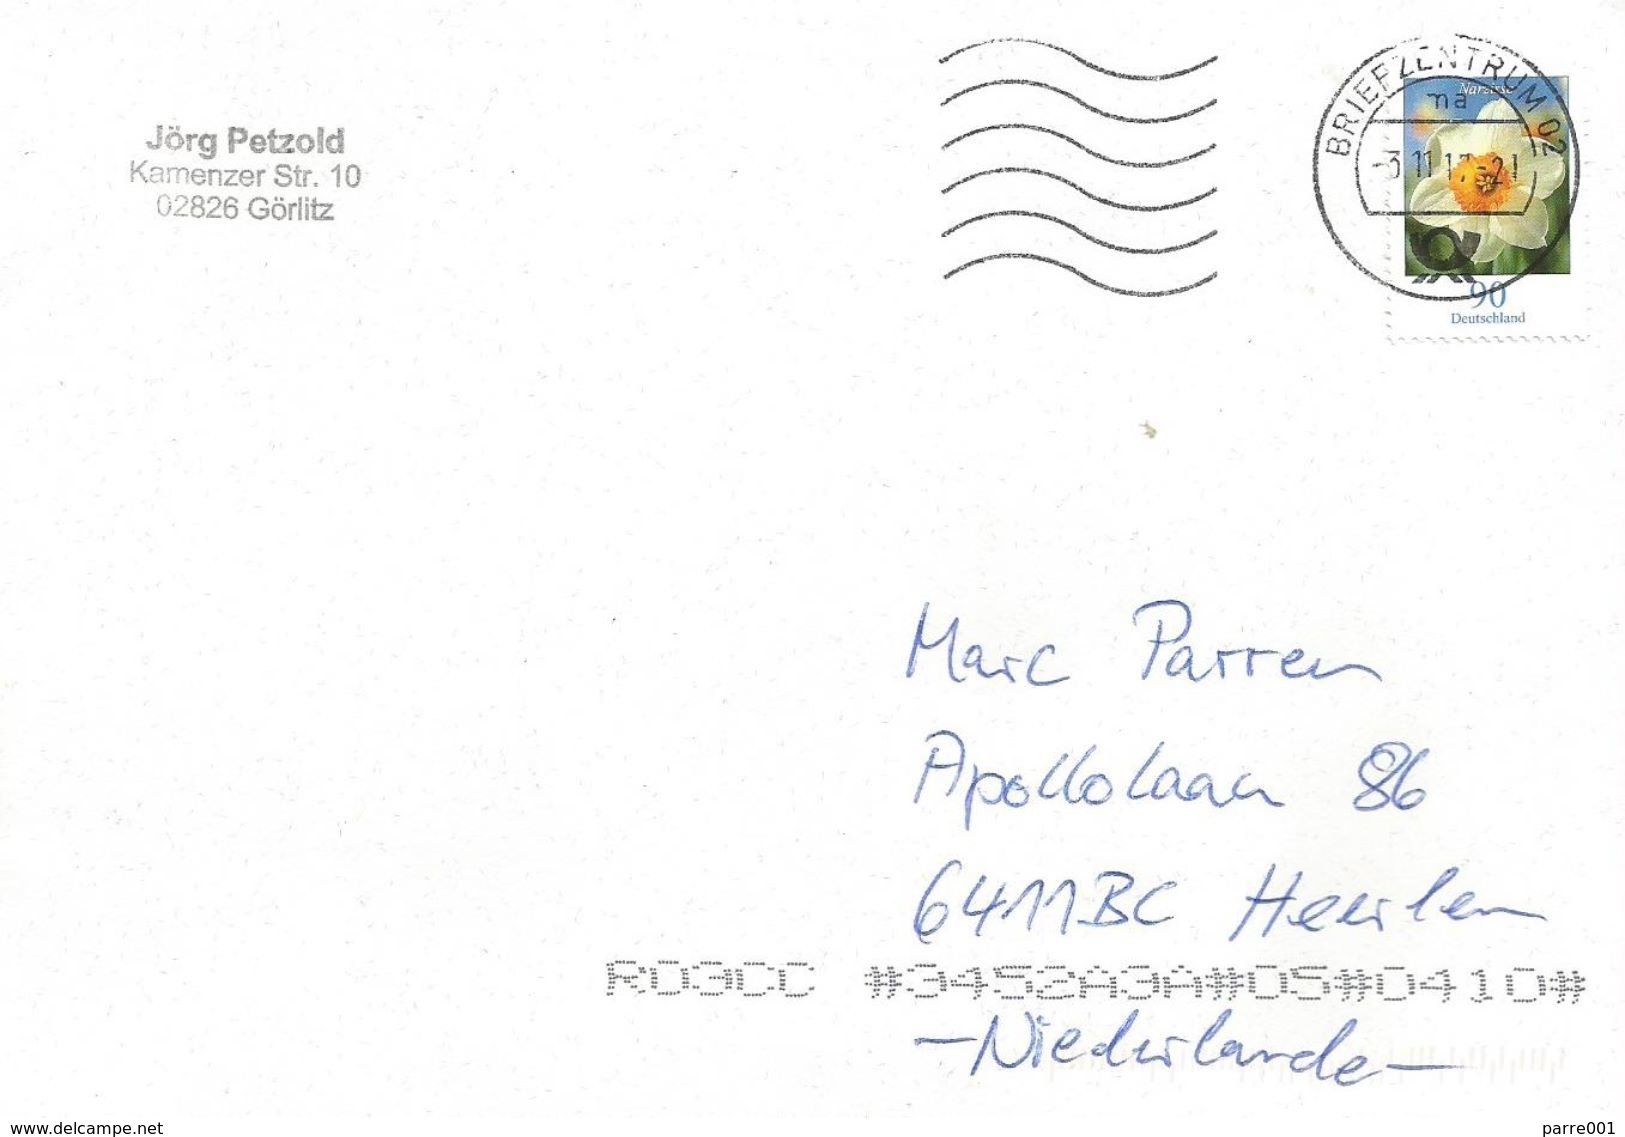 Jörg Petzold
Kamenzer Str. 10
02826 Görlitz
BRIEFZENTRUM 02
na
Narzisse
-3.11.17-21
90
Deutschland
Marc Parren
Apollolaan 86
6411BC Heerlen
RD3CC #3452A3A#05#0410#
-Niederlande-
www.delcampe.net
parre001